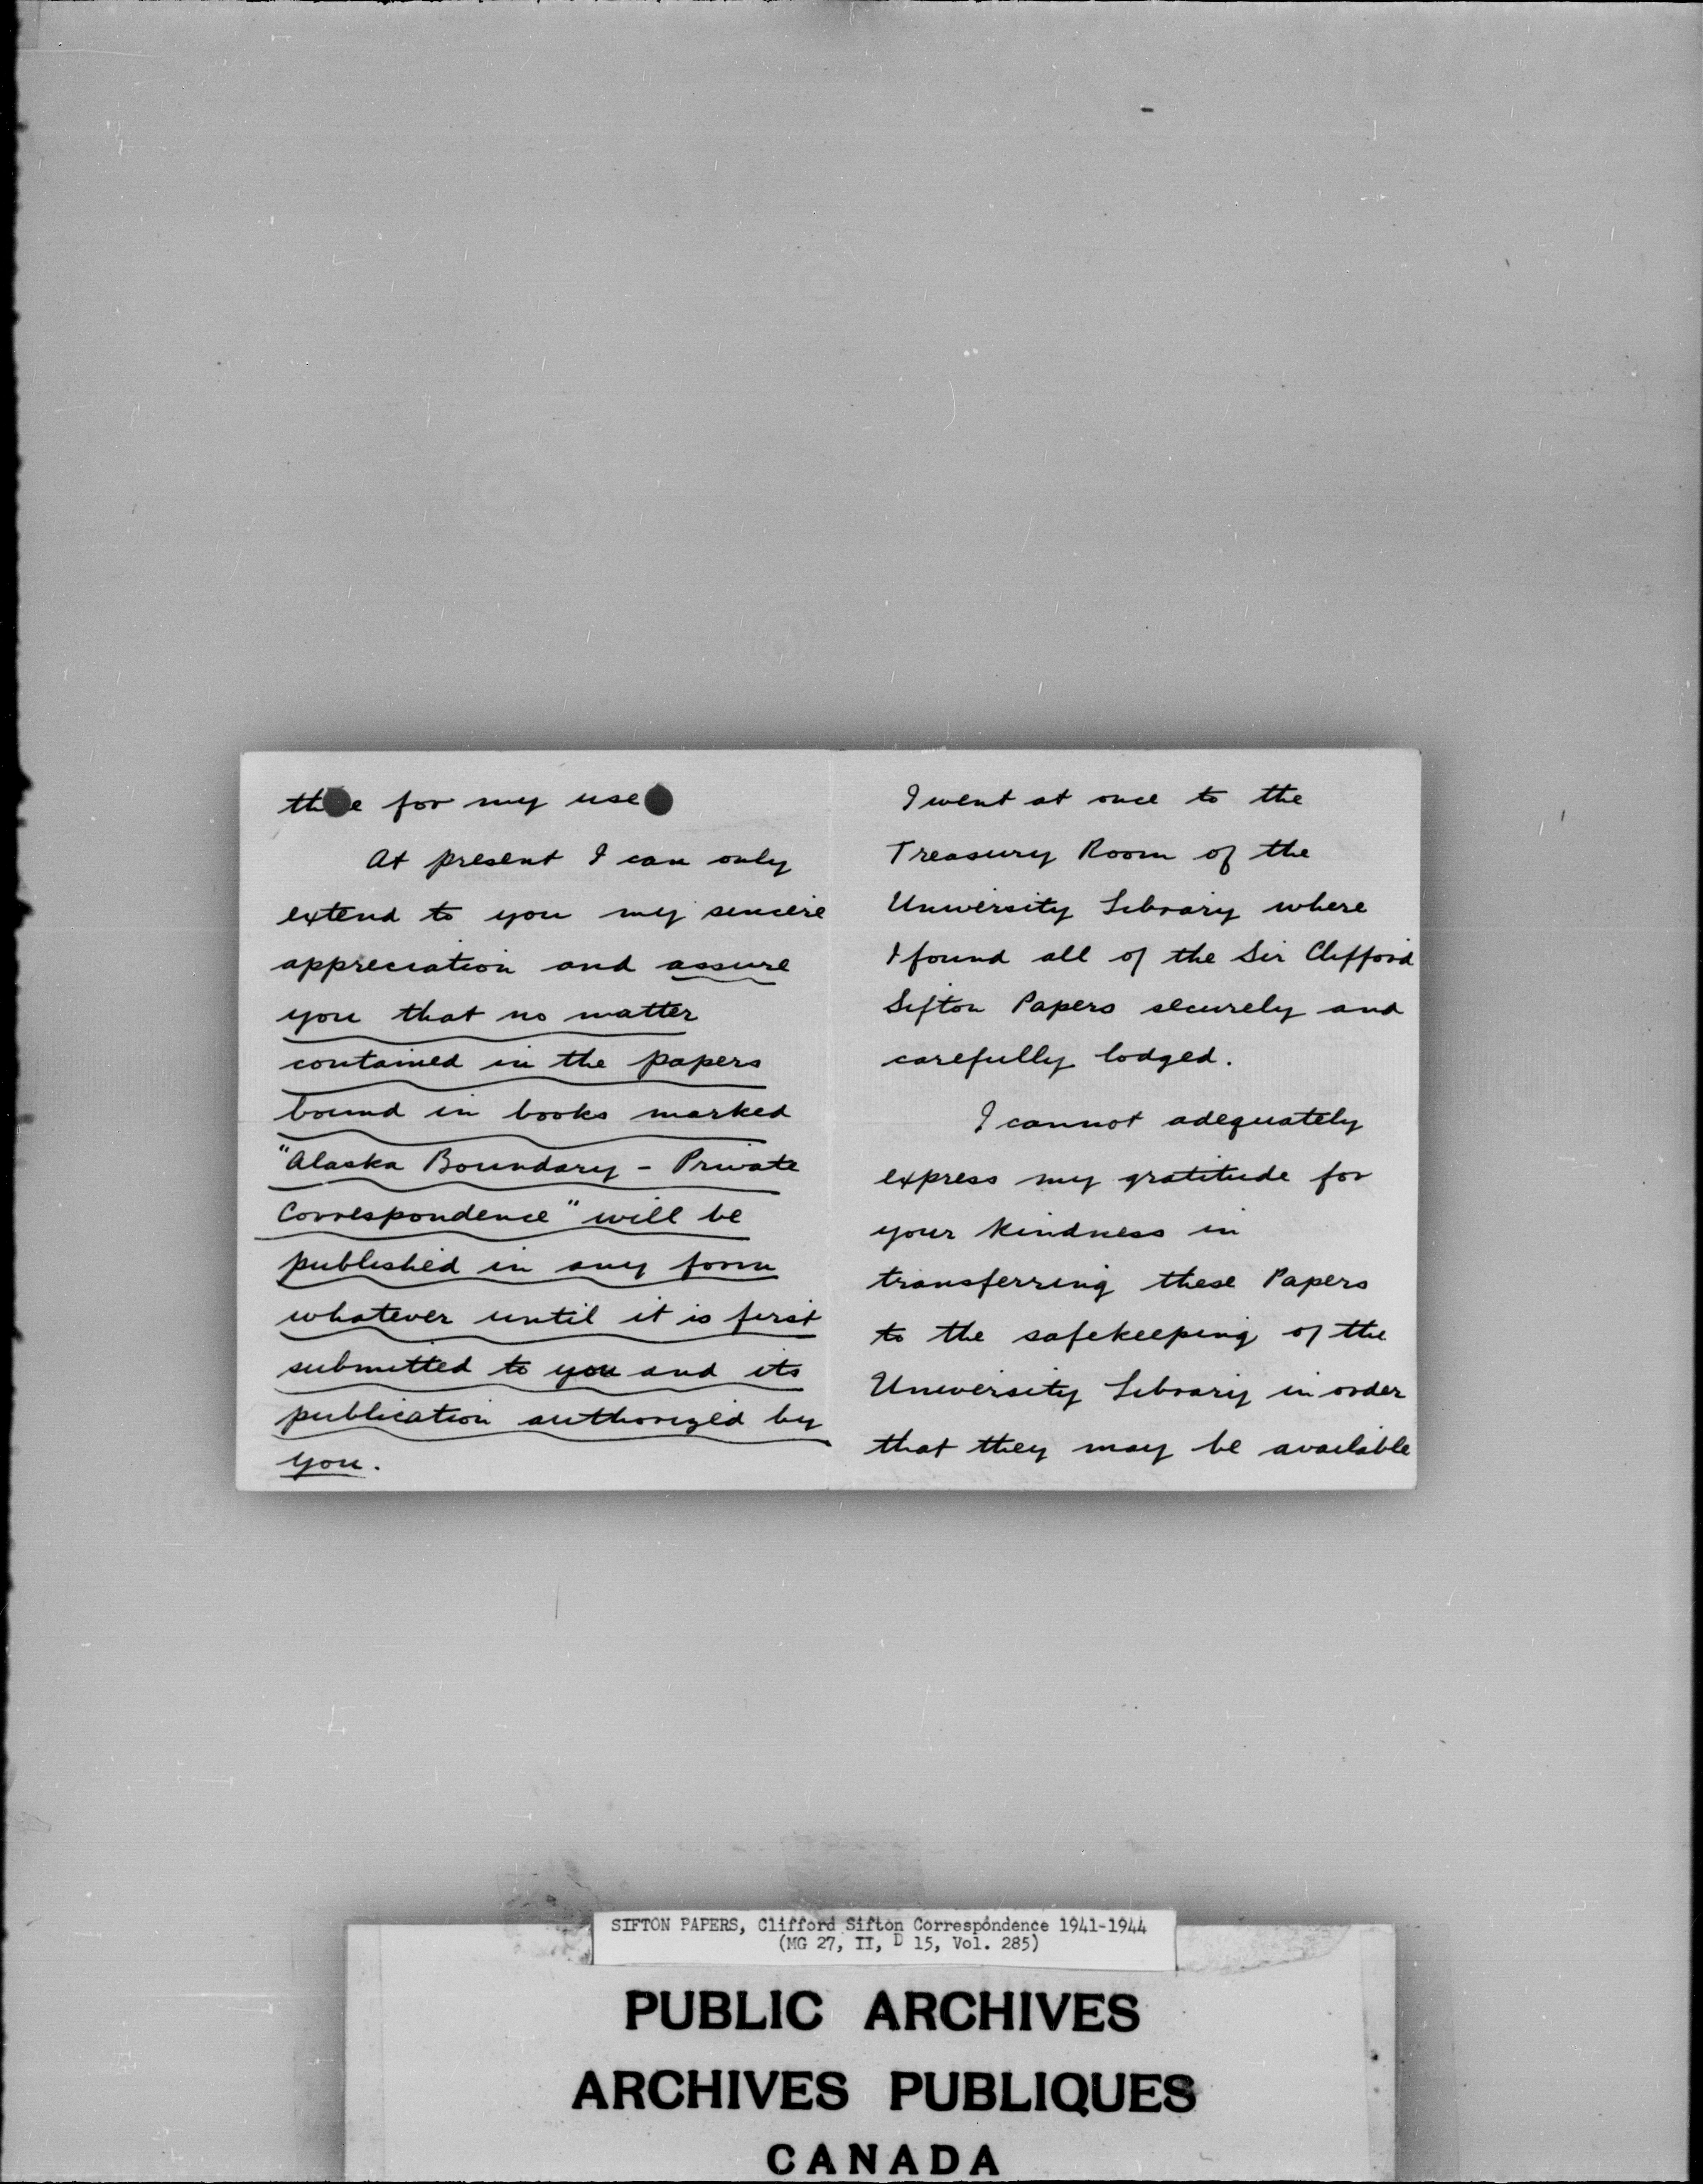 there for my use
At present I can only
extend to you my sincere
appreciation and assure
you that no matter
contained in the papers
bound in books marked
"Alaska Boundary - Private
Correspondence" will be
published in any form
whatever until it is first
submitted to you and its
publication authorized by
you.
I went at once to the
Treasury Room of the
University Library where
I found all of the Sir Clifford
Sifton Papers securely and
carefully lodged.
I cannot adequately
express my gratitude for
your kindness in
transferring these Papers
to the safekeeping of the
University Library in order
that they may be available
SIFTON PAPERS, Clifford Sifton Correspondence 1941-1944
(MG 27, II, D 15, Vol. 285)
PUBLIC ARCHIVES
ARCHIVES PUBLIQUES
CANADA